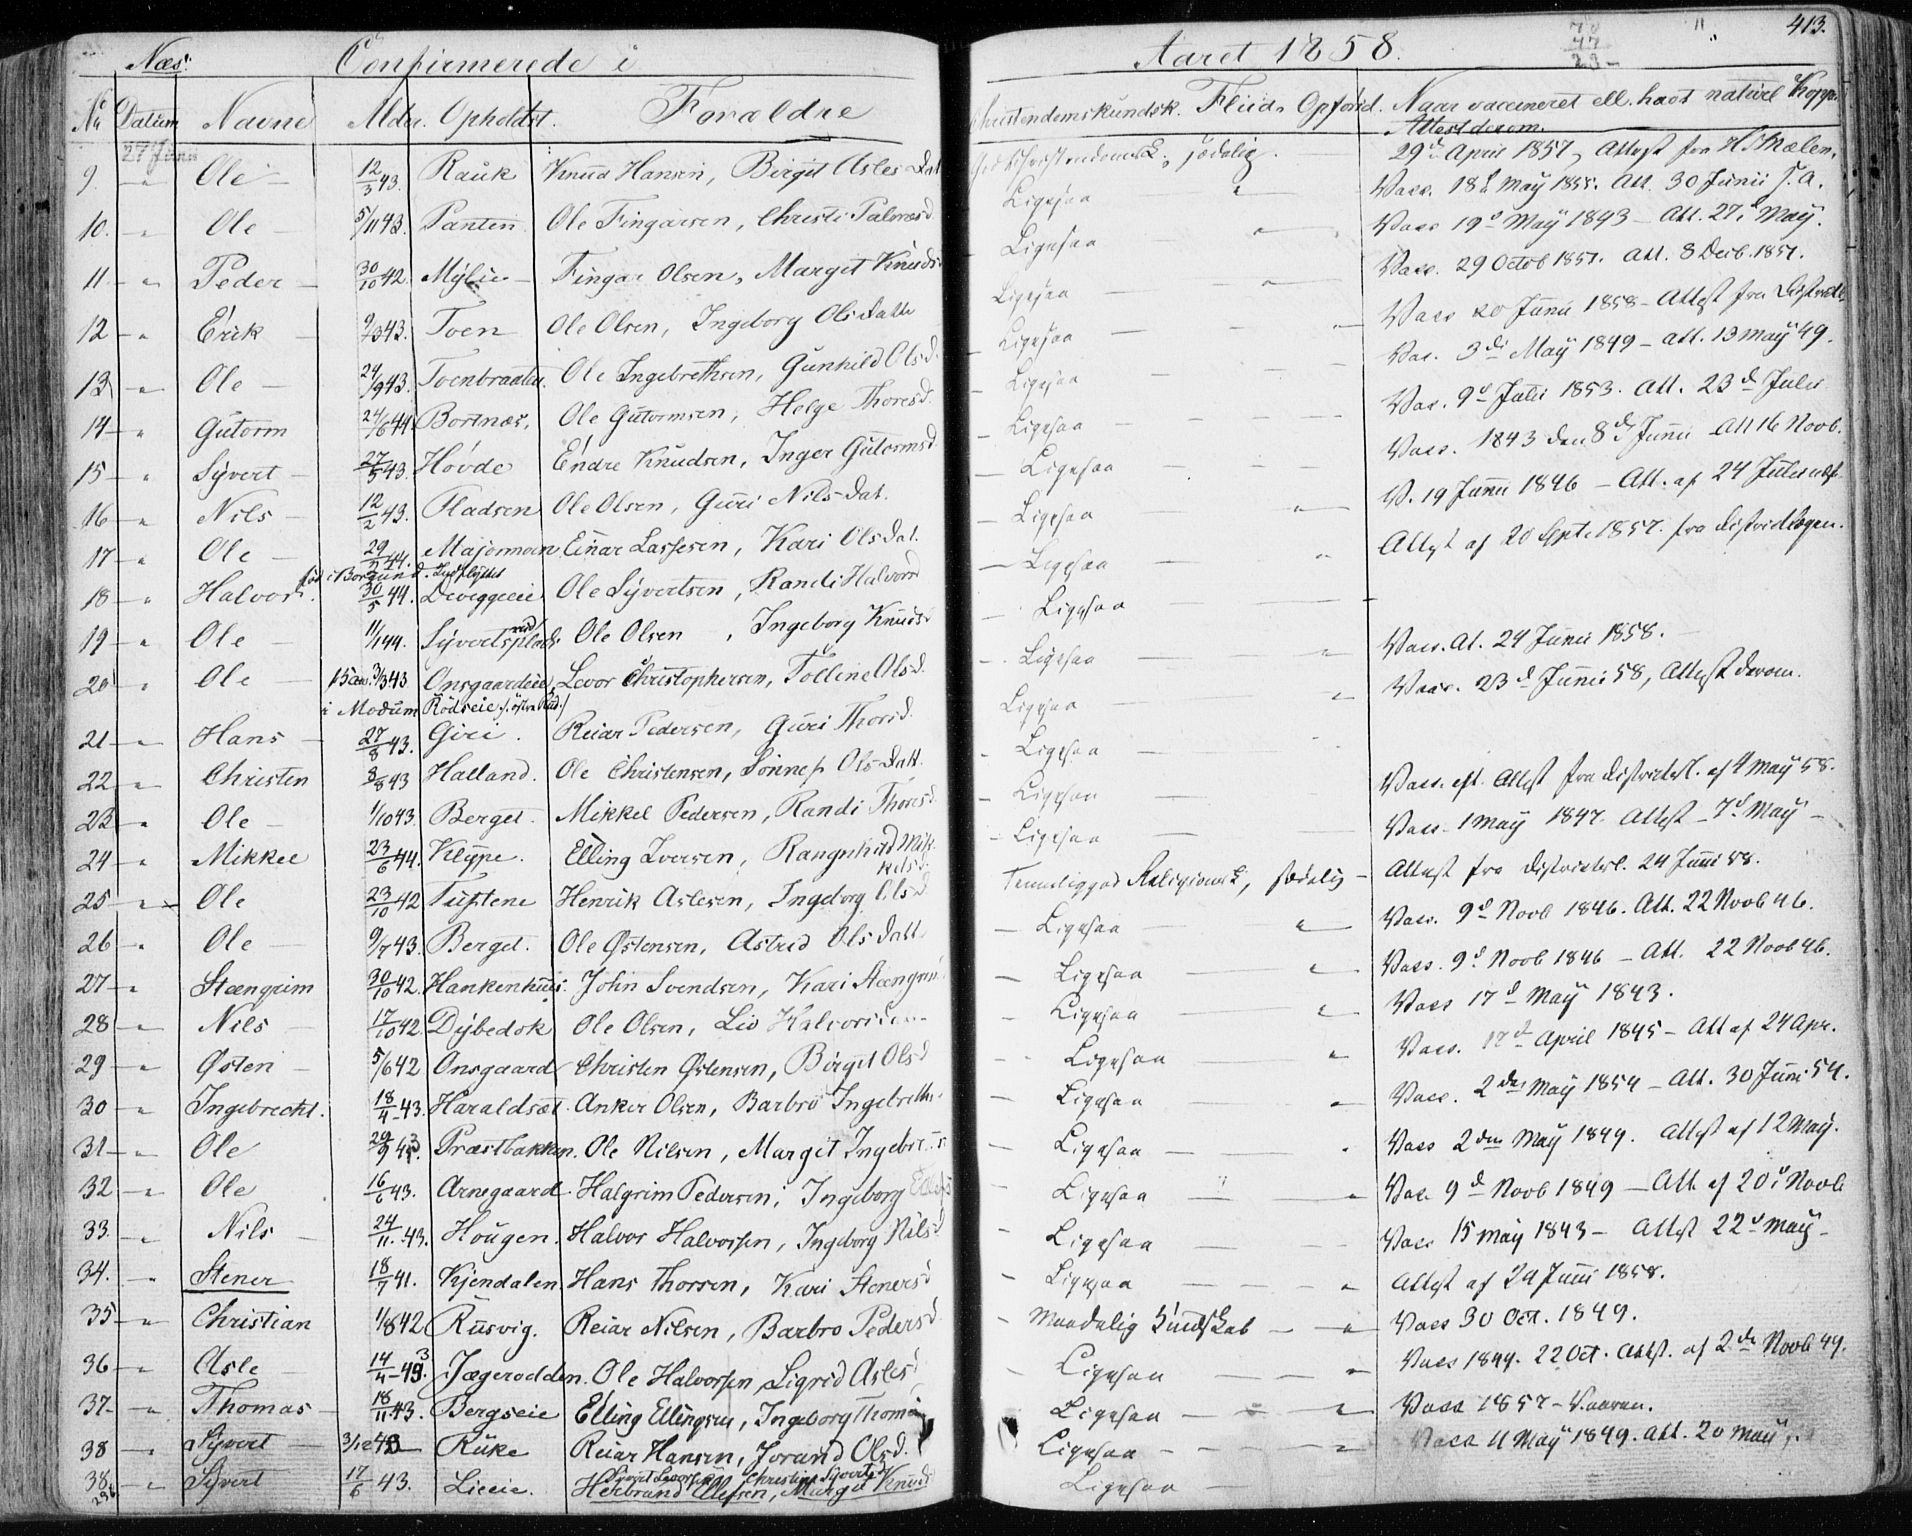 413.
Næs. Confirmerede i Aaret 1858.
No Datum Navne Alder. Opholdst. Forældre Christendomskundsk. Flid, Opførsel. Naar vaccineret ell. havt naturl. Kopper
Attest derom.
27 Junii
9. " Ole 12/3 43. Rauk Knud Hansen, Birgit Asles Dat God Christendomsk., sædelig. 29de April 1857, Attest fra
10. " Ole 5/11 43. Panten Ole Fingarsen, Christi Ligesaa " Vacc. 18de May 1855. Att. 30 Junii s.a.
11 " Peder 30/10 42. Mylie Fingar Olsen, Margit Knudsd Ligesaa " Vacc 19de May 1843 – Att. 27de May.
12 " Erik 9/3 43. Toen Ole Olsen, Ingeborg Olsdatt Ligesaa " Vacc. 29 Octob 1857. Att. 8 Decb. 1857.
13 " Ole 24/9 43. Toenbraaten. Ole Ingebrethsen, Gunhild Olsd. Ligesaa " Vacc 20 Junii 1858 – Attest fra
14 " Gutorm 24/6 44. Bortnæs. Ole Gutormsen, Helge Thoresd. Ligesaa Vac. 3de May 1849 – att. 13 May 49.
15 " Syvert 27/5 43. Hovde Endre Knudsen, Inger Gutormsd Ligesaa Vac. 9de Julii 1853. Att. 23de Julii
16 " Nils 12/2 43. Pladsen Ole Olsen, Guri Nils-dat. Ligesaa Vacc. 1843 den 8de Junii Att 16 Novb.
17 " Ole 29/2 44. Majormoen Einar Lassesen, Kari Olsdat. Ligesaa " V. 19 Junii 1846 – Att. af 24 Julii
født i Borgund. Indflyttet
18 " Halvor. 30/5 44. Diveggeeie Ole Syvertsen, Randi Halvorsd Ligesaa " Attest af 20 Sept. 1857. fra Districtslægen.
19 " Ole 11/1 44. Syvertsplads Ole Olsen, Ingeborg Knudsd Ligesaa
20 " Ole 3/3 43 Onsgaardeie, Levor Christophersen, Tolline Olsd. Ligesaa " Vacc. At. 24 Junii 1858.
i Modum Rödseie
21 " Hans 27/8 43. Giri. Reiar Pedersen, Guri Thorsd. Ligesaa " Vacc. 23de Junii 58, Attest derom.
22 " Christen 3/8 43 Halland. Ole Christensen, Sønnev Ols-Datt. Ligesaa
23 " Ole 1/10 43. Berget. Mikkel Pedersen, Randi Thoresd. Ligesaa Vacc. eft. Attest fra Districtsl. af 4 May 58.
24 " Mikkel 23/6 44. Klyppe. Elling Iversen, Rangnhild Mikkelsd. Ligesaa Vacc. 1 May 1847. Attest 7de May
25 " Ole 23/10 42 Tuftene Henrik Aslesen, Ingeborg Olsd Temmelig god Religionsk., sædelig Attest fra Districtsl. 24 Junii 58.
26 " Ole 9/7 43. Berget. Ole Østensen, Astrid Olsdatt Ligesaa " Vacc. 9de Novb 1846. Att. 22 Novb 46.
27 " Stængrim 30/10 42. Hankenhuus. John Svendsen, Kari Ligesaa " Vacc. 9de Novb 1846 – Att. 22 Novb 46.
28 " Nils 17/10 42. Dybedok Ole Olsen, Liv Halvorsd Ligesaa " Vacc 17de May 1843.
29 " Østen 5/6 42 Onsgaard Christen Østensen, Birgit Olsd Ligesaa " Vacc. 17de April 1845 – Att af 24 Apr.
30 " Ingebrecht. 18/4 43. Haraldsæt. Anker Olsen, Barbro Ingebreths. Ligesaa " Vacc. 2den May 1854 – Att. 30 Juni 54.
31 " Ole 29/9 43. Præstbakken. Ole Nilsen, Margit Ligesaa " Vacc 2den May 1849. Attest af 12 May.
32 " Ole 16/6 43. Arnegaard Halgrim Pedersen, Ingeborg Ligesaa " Vac. 9de Novb 1849 – Att. af 20de Novb
33. " Nils 24/11 43. Hougen. Halvor Halvorsen, Ingeborg Nilsd Ligesaa Vacc 15 May 1843 – Attest 22de May
34. " Stener 18/7 41. Kjendalen Hans Thorsen, Kari Stenersd Ligesaa " Attest af 24 Junii 1858.
35 " Christian 1/8 42 Rusvig. Reiar Nilsen, Barbro Pedersd. Maadelig Kundskab " Vacc 30 Oct. 1849.
36 " Asle 14/4 43. Jægerodden. Ole Halvorsen, Sigrid Aslesd Ligesaa " Vacc 1849. 22 Oct. Attst. af 2den Novb 49.
37 " Thomas 18/11 43. Bergseie Elling Ellingsen, Ingeborg Thoma Ligesaa " Vacc 1857 – Vaaren.
38 " Syvert 3/12 43 Ruke Reiar Hansen, Jorand Olsd. Ligesaa " Vacc 11 May 1849. Att. 20 May.
38. " Syvert 17/6 43. Lieeie. Syvert Christine Syverts Ligesaa
Herbrand Olesen, Margit Knudsd